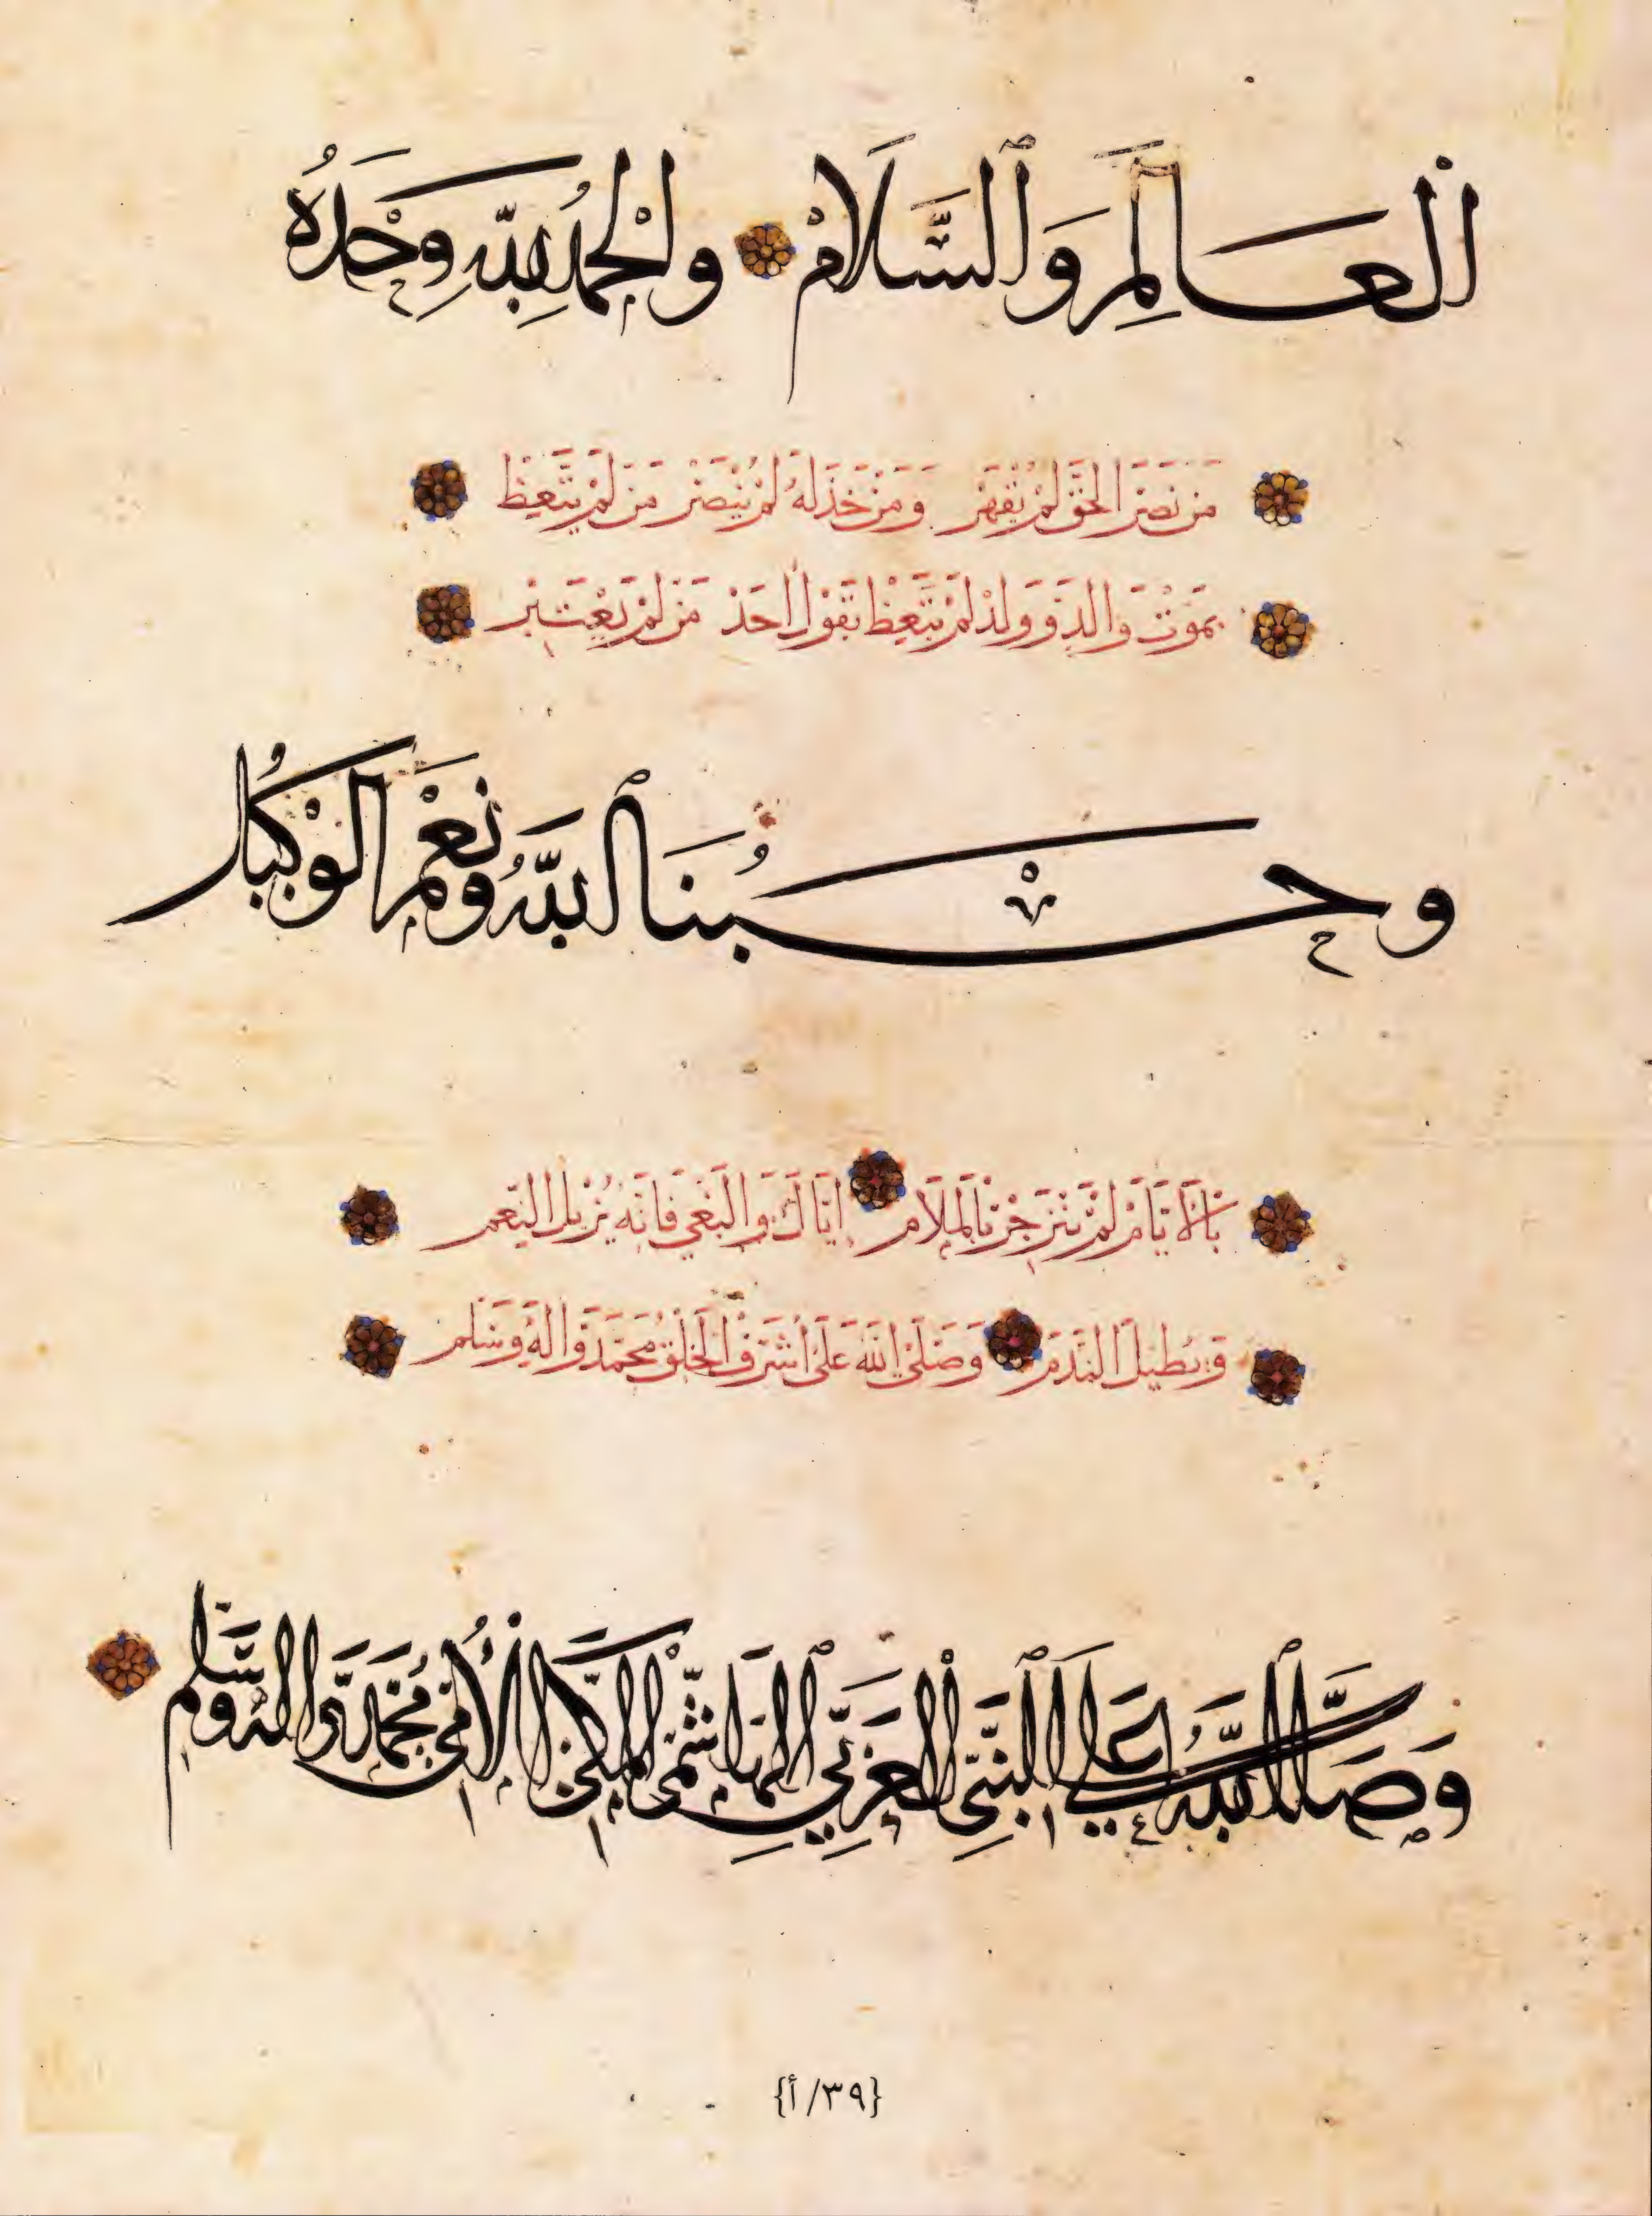 الْعَالَمِ وَالسَّلَامْ وَالْحَمْدُ لِلَّهِ وَحْدَهُ
مَنْ نَصَرَ الحَقَّ لَمْ يُقْهَرْ وَمَنْ خَذَلَهُ لَمْ يُنْصَرْ مَنْ لَمْ يَتَّعِظْ
بِمَوْتِ وَالِدٍ وَوَلَدْ لَمْ يَتَّعِظْ بِقَوْلِ أَحَدْ مَنْ لَمْ يَعْتَبِرْ
وَحَسْبُنَا اللَّهُ وَنِعْمَ الْوَكِيلُ
بِالْأَيَّامْ لَمْ يَنْزَجِرْ بِالمَلَامْ إِيَّاكَ وَالْبَغْيَ فَإِنَّهُ يُزِيلُ النِّعَمْ
وَيُطِيلُ النَّدَمْ وَصَلَّى اللَّهُ عَلَى أَشْرَفِ الْخَلْقِ مُحَمَّدٍ وَآلِهِ وَسَلَّمْ
وَصَلَّى اللَّهُ عَلَى النَّبِيِّ الْعَرَبِيِّ الْهَاشِمِيِّ الْمَكِّيِّ الْأُمِّيِّ مُحَمَّدٍ وَآلِهِ وَسَلَّمْ
{٣٩/أ}